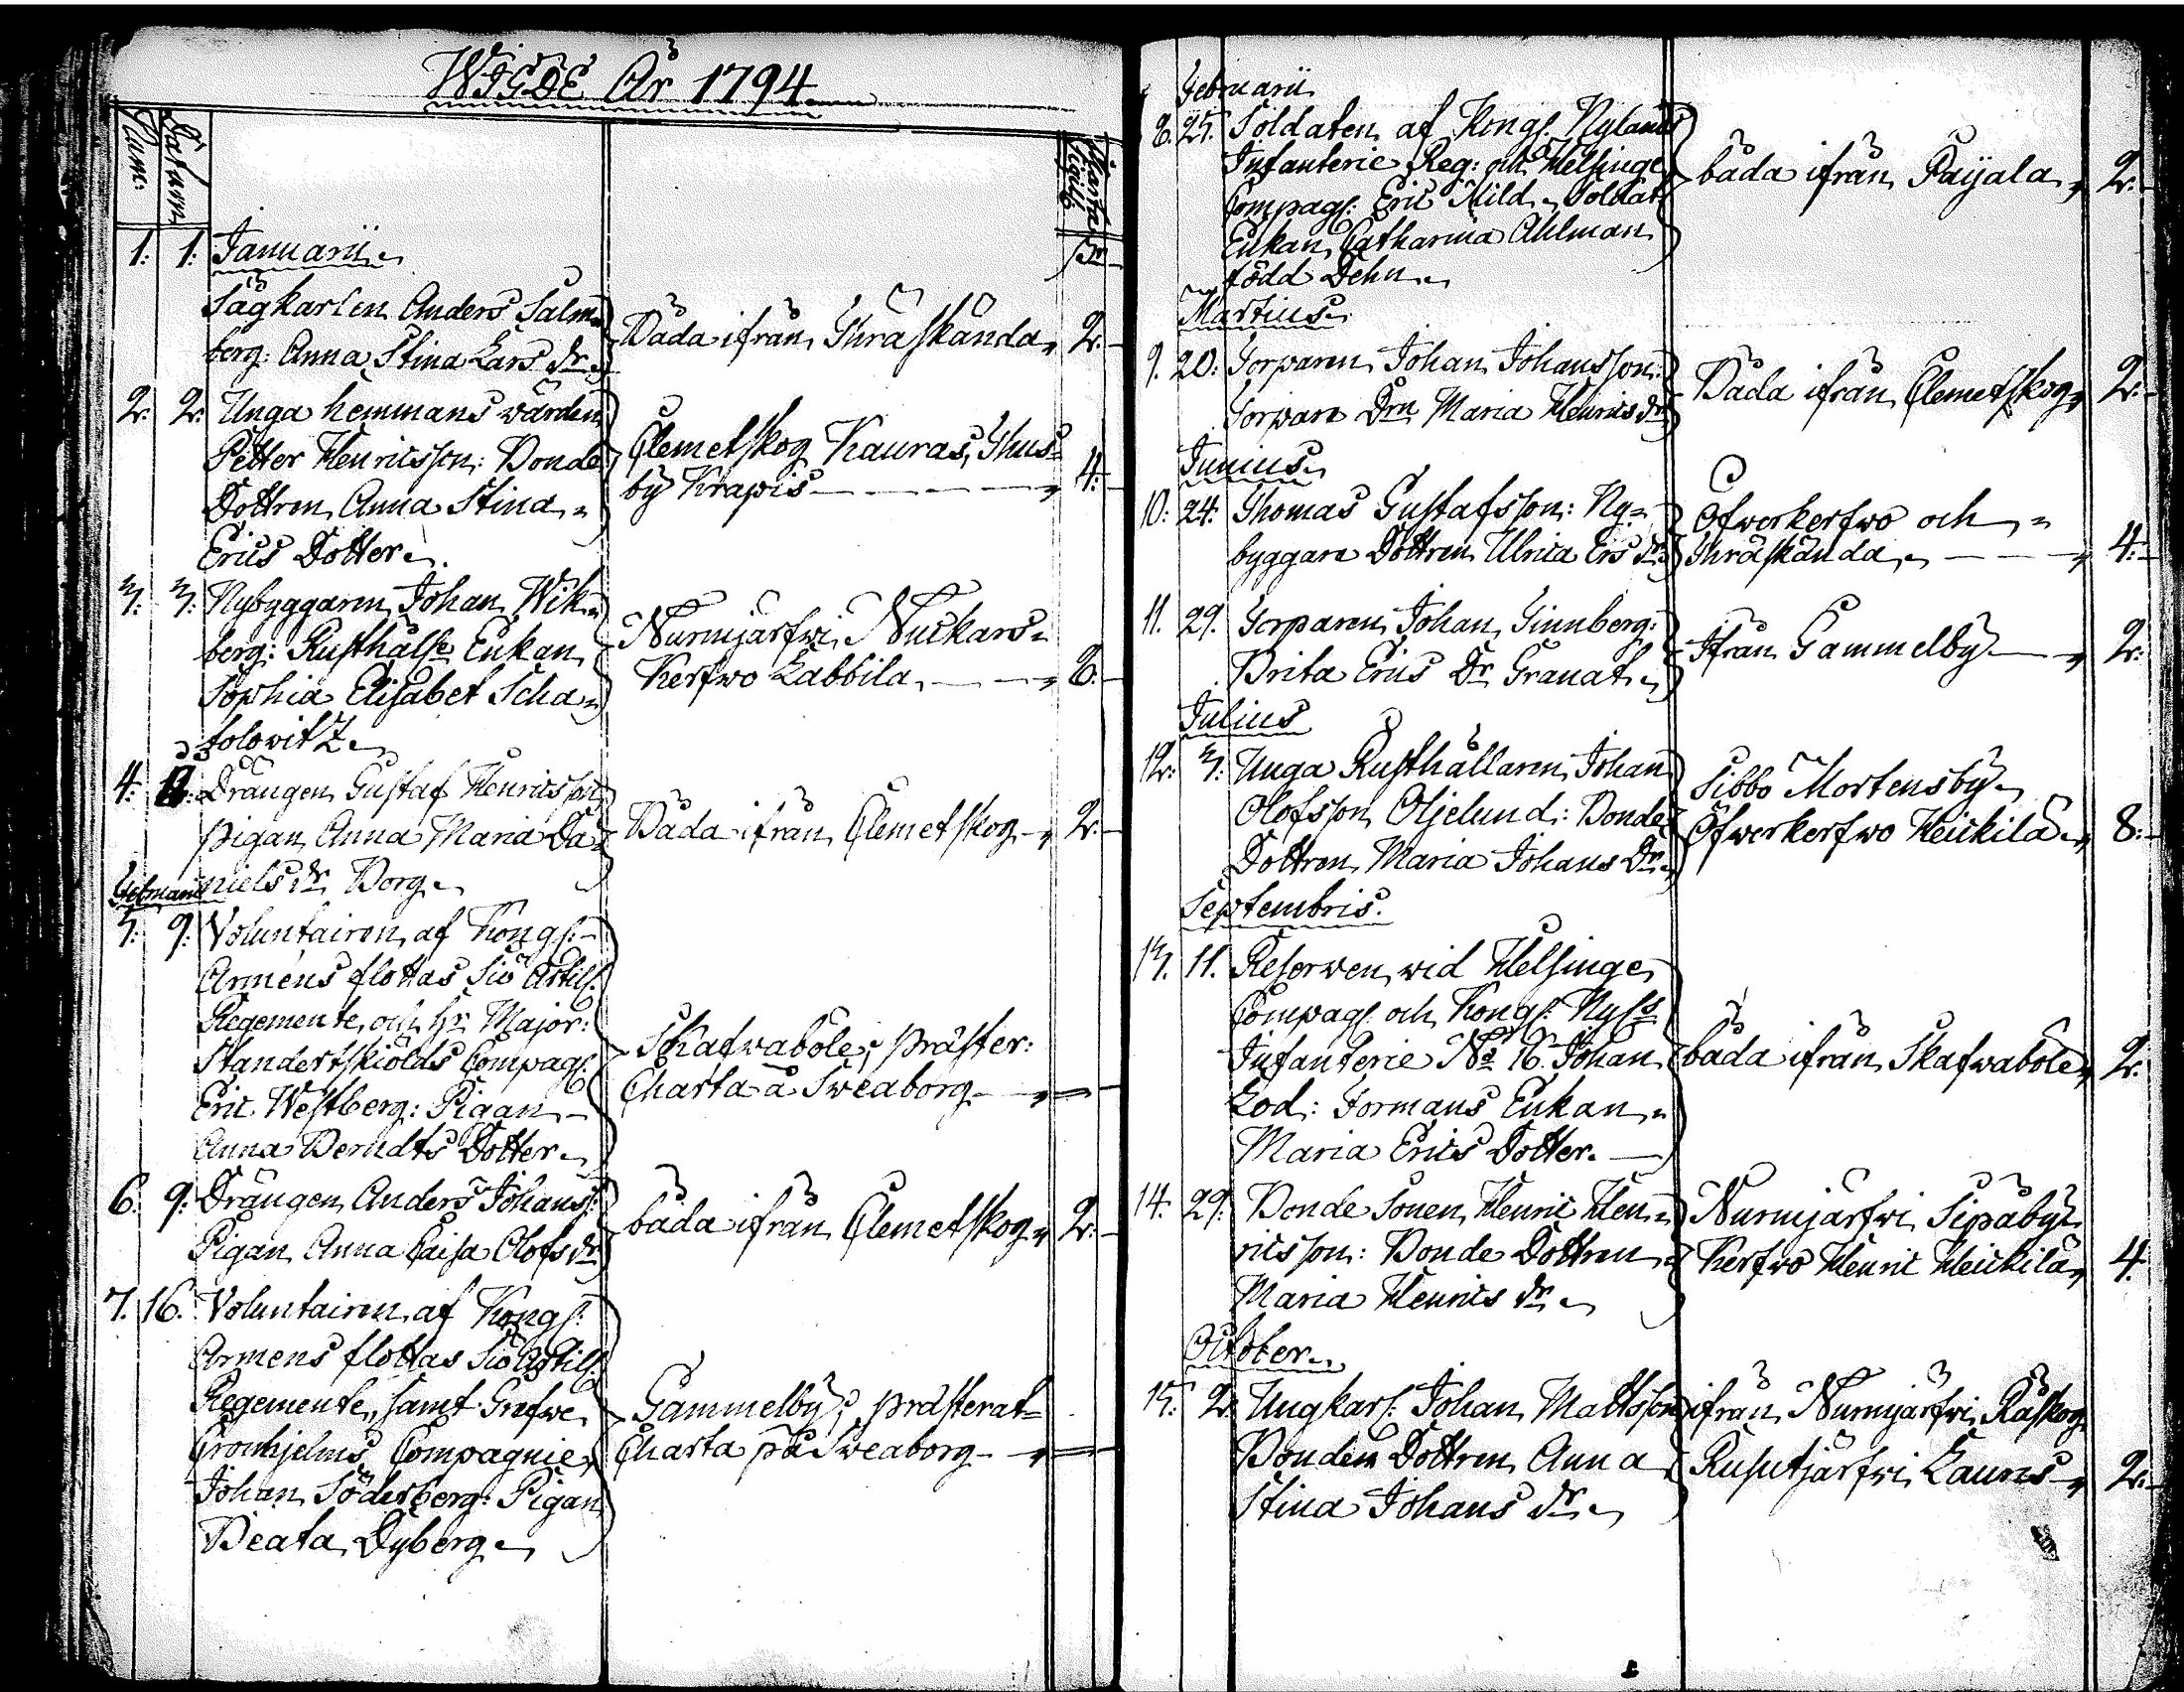 WIGDE År 1794
Num:
Datum
Charta Sigill:
1: 1: Januarii
Sågkarlen Anders Salm=
berg: Anna Stina Lars dr
Båda ifrån Thräskända 2:
2: 2: Unga hemmans wärden
Petter Henricsson: Bonde
Dottren Anna Stina
Erics Dotter
Clemetskog Kauras, Thus=
by Krapis 4:
3: 3: Nybyggaren Johan Wik=
berg: Rusthålls Enkan
Sophia Elisabet Scha=
tolowitz
Nurmjärfwi Nuckars
Kerfwo Labbila 6:
4: Drängen Gustaf Henricsson
pigan Anna Maria Da=
niels dr Borg
Båda ifrån Clemetskog 2:
Februarii
5: 9: Voluntairen af Kongl:
Armens flottas Siö Artill:
Regemente, och Hr Major:
Standertskiölds Compagl:
Eric Westberg: Pigan
Anna Berndts Dotter
Skafwabole; präster:
Charta å Sweaborg
6. 9: Drängen Anders Johans:
Pigan Anna Caisa Olofs dr
båda ifrån Clemetskog 2:
7. 16. Voluntairen af Kongl:
Armens flottas Siö Artill:
Regemente, samt Grefwe
Cronhjelms Compagnie
Johan Söderberg: Pigan
Beata Dyberg
Gammelby; prästerat=
Charta på Sweaborg
Februarii
8. 25. Soldaten af Kongl. Nylands
Infanterie Reg: och Helsinge
Compagl: Eric Mild, Soldat
Enkan Catharina Ahlman
född Dehn
båda ifrån Paijala 2:
Martius
9. 20: Torparen Johan Johansson:
Torpare Drn Maria Henrics dr
Båda ifrån Clemetskog 2:
Junius
10: 24: Thomas Gustafsson: Ny=
byggare Dottren Ulrica Ers dr
Öfwerkerfwo och
Thräskända 4:
11. 29. Torparen Johan Ginnberg:
Brita Erics Dr Granat
Ifrån Gammelby 2:
Julius
12: 3: Unga Rusthållaren Johan
Olofsson Oljelund: Bonde
Dottren Maria Johans Dr
Sibbo Mortensby
Öfwerkerfwo Heickilä 8:
Septembris.
13. 11. Reserwen wid Helsinge
Compagl. och Kongl: Nyls
Infanterie No 16. Johan
Lod: Formans Enkan
Maria Erics Dotter.
båda ifrån Skafwabole 2:
14. 29: Bonde Sonen Henric Hen=
ricsson: Bonde Dottren
Maria Henrics dr
Nurmjärfwi Sipaby
Kerfwo Henric Heickilä 4.
October
15: 2 Ungkarl: Johan Mattsson
Bonden Dottren Anna
Stina Johans dr
ifrån Nurmjärfwi Råskog
Rusutjärfwi Laurs 2: